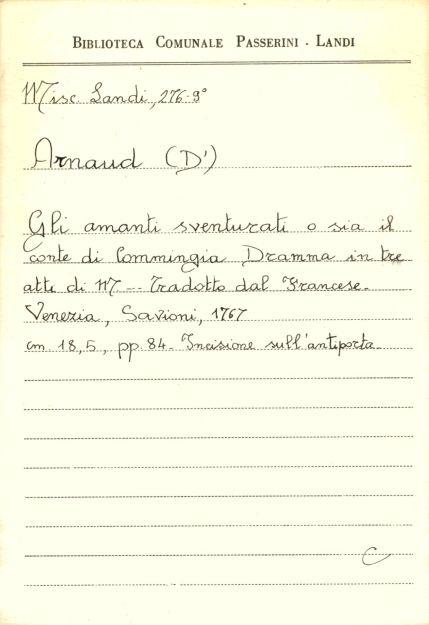 BIBLIOTECA COMUNALE PASSERINI - LANDI
Misc. Landi, 276-9°
Arnaud (D')
Gli amanti sventurati o sia il
conte di Commingia Dramma in tre
atti di M --- Tradotto dal Francese-
Venezia, Savioni, 1767
cm 18,5, pp. 84- Incisione sull'antiporta-
C